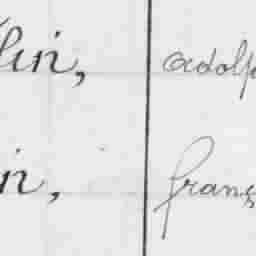 lin, adolp
in, franç